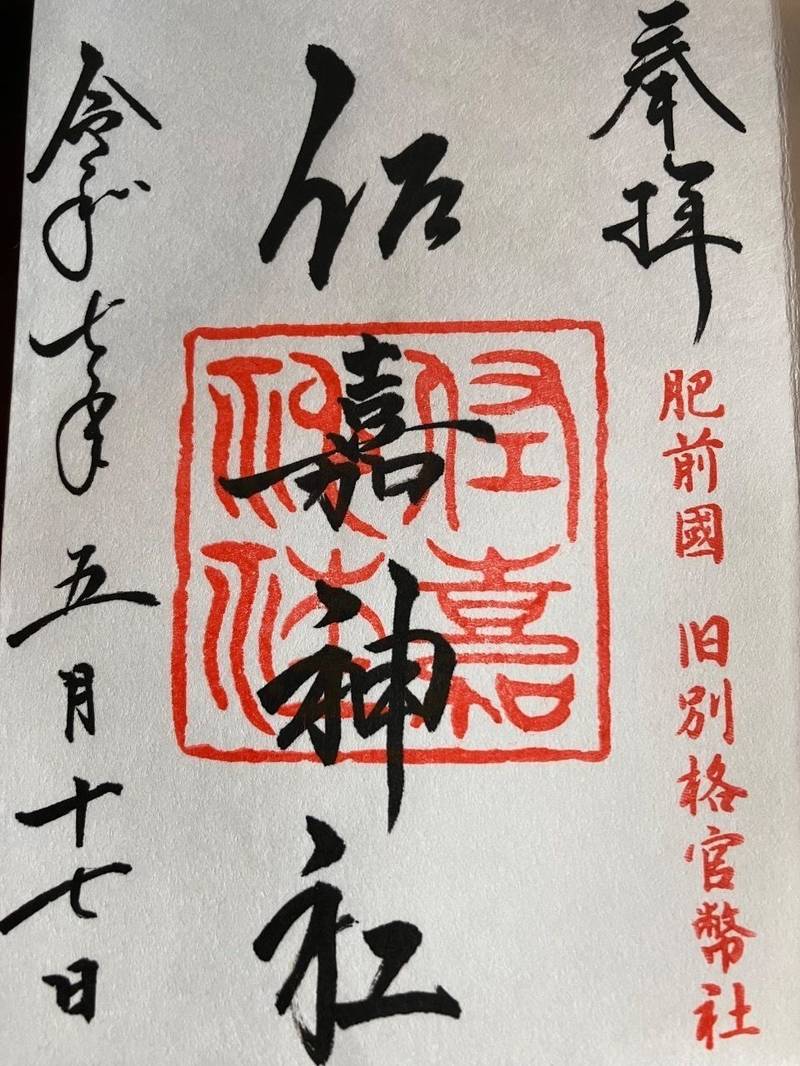 奉拝
肥前國 旧別格官幣社
佐嘉神社
佐嘉神社
令和七年五月十七日